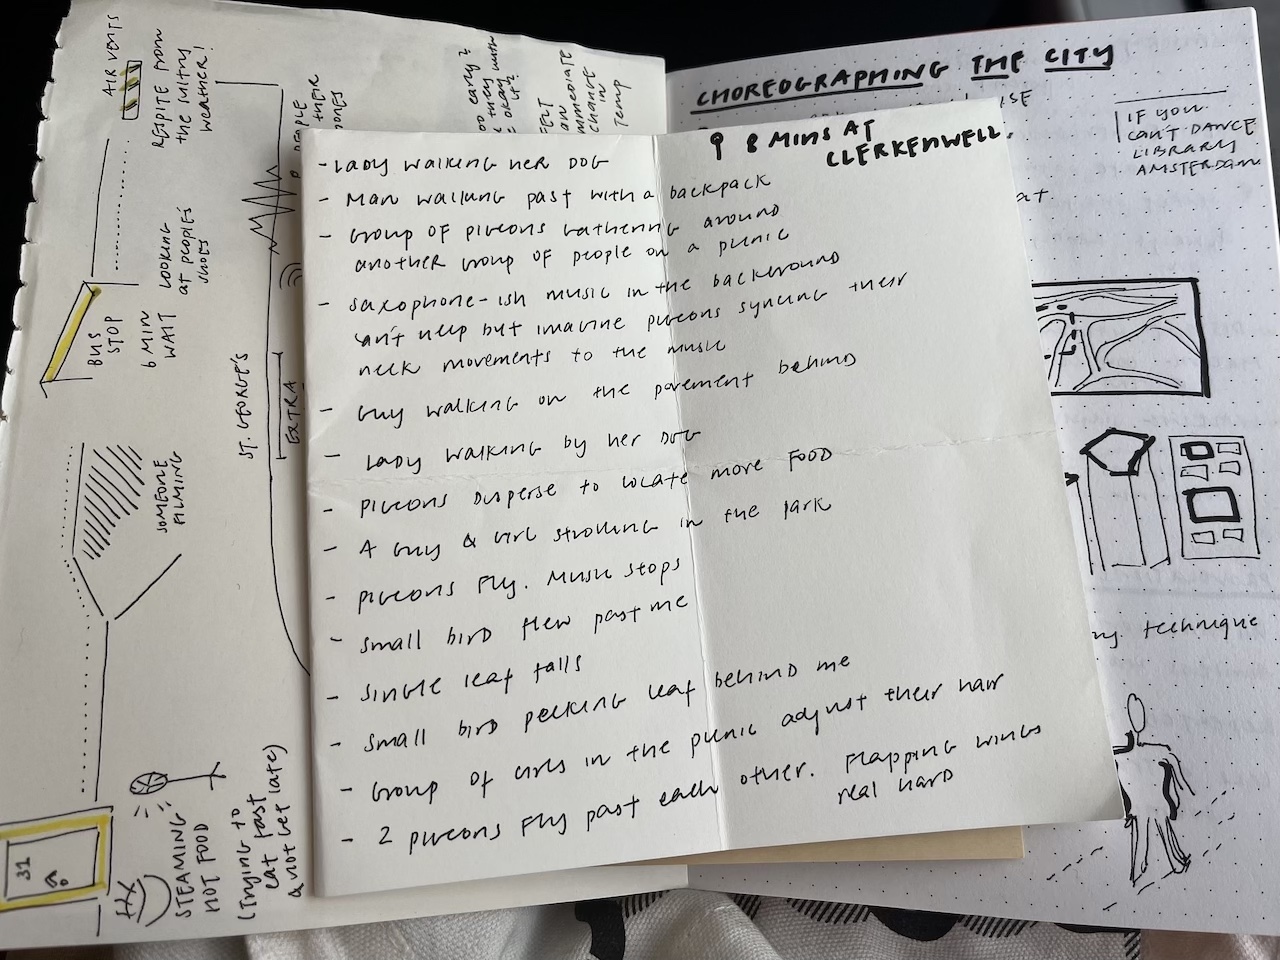 AIR VENTS
RESPITE FROM
the sultry
weather!
BUS
STOP
6 MIN
WAIT
LOOKING
at people's
shoes
SOMEONE
FILMING
31
STEAMING
HOT FOOD
(trying to
eat fast
& not get late)
ST. GEORGE'S
EXTRA
PEOPLE
early?
okay
an
immediate
change
in
Temp
CHOREOGRAPHING THE CITY
IF YOU
CAN'T DANCE
LIBRARY
AMSTERDAM
technique
8 MINS AT
CLERKENWELL.
- LADY WALKING HER DOG
- Man walking past with a backpack
- Group of pigeons gathering around
another group of people on a picnic
- saxophone-ish music in the background
can't help but imagine pigeons syncing their
neck movements to the music
- Guy walking on the pavement behind
- Lady walking by her DOG
- pigeons disperse to locate more FOOD
- A Guy & Girl strolling in the park
- pigeons Fly. Music stops
- small bird flew past me
- single leaf falls
- small bird pecking leaf behind me
- Group of Girls in the picnic adjust their hair
- 2 pigeons Fly past each other. Flapping wings
real hard